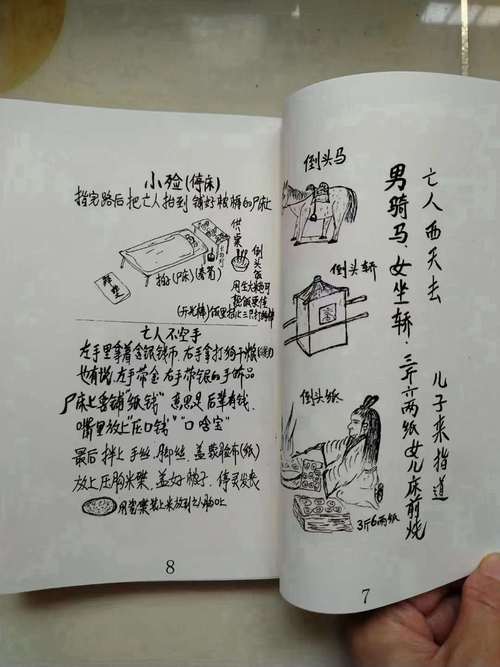 小殓(停床)
指完路后把亡人抬到铺好被褥的尸床上
供桌
倒头饭
抬(尸床)
(开光棒)饭里插上三只打狗棒
亡人不空手
左手里拿着金银钱币.右手拿打狗干粮
也有说.左手带金.右手带银的手饰品
尸床上要铺"纸钱" 意思是后辈有钱.
嘴里放上"压口钱" "口含宝"
最后拌上手丝.脚丝.盖蒙脸布(纸)
放上压胸米栗.盖好被子.停灵发丧
8
亡人西天去 儿子来指道
男骑马.女坐轿.三斤六两纸女儿床前烧
倒头马
倒头轿
倒头纸
3斤6两纸
7